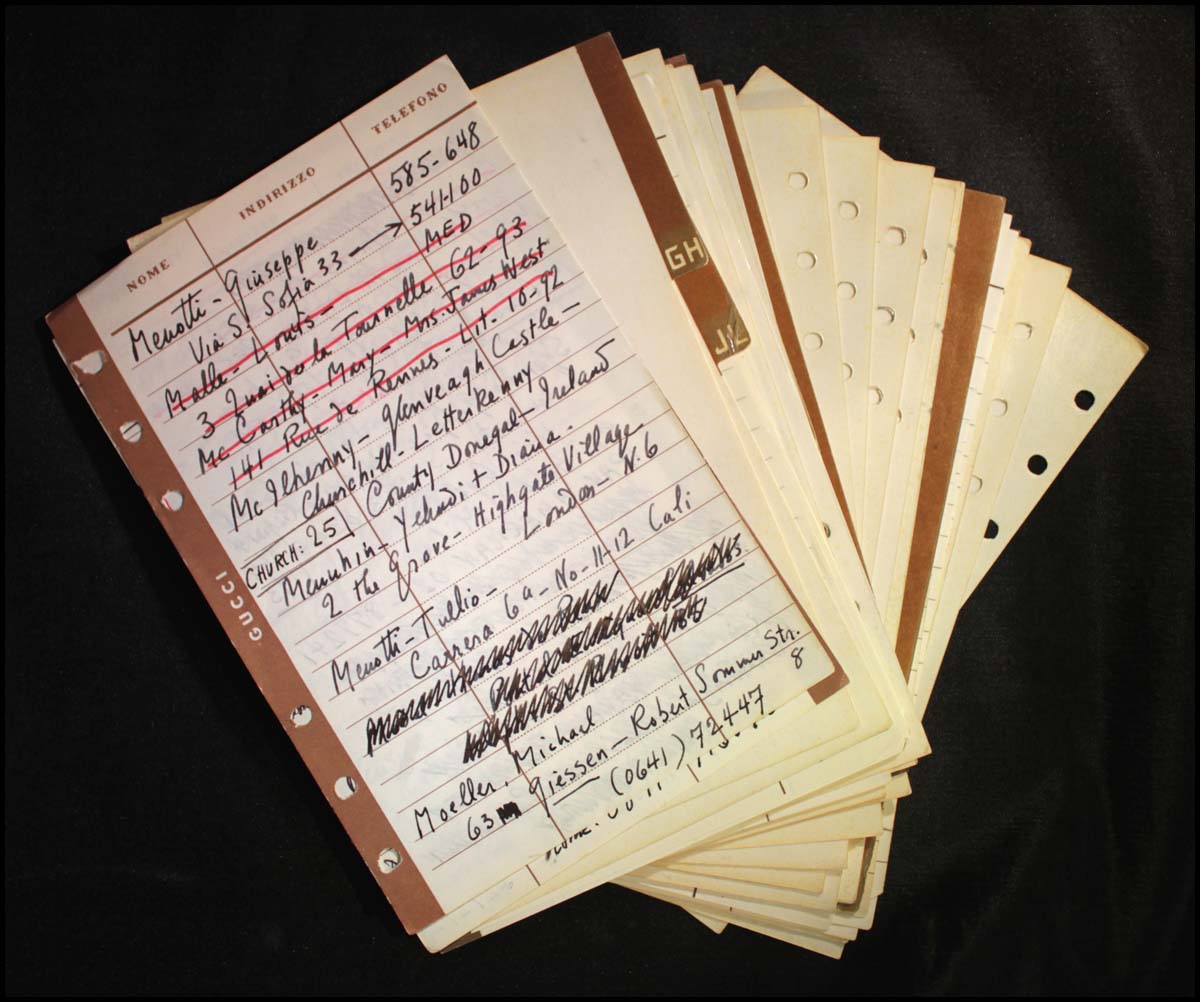 NOME INDIRIZZO TELEFONO
Menotti - Giuseppe 585-648
Via S. Sofia 33 → 541-100
Malle - Louis - MED
3 Quai de la Tournelle 62-93
Mc Carthy - Mary - Mrs. James West
141 Rue de Rennes - Lit - 10-92
Mc Ilhenny - Glenveagh Castle -
Churchill - Letterkenny
CHURCH: 25 County Donegal - Ireland
Menuhin - Yehudi + Diana -
2 the Grove - Highgate Village
London - N.6
Menotti - Tullio -
Carrera 6a - No - 11-12 Cali
Moeller, Michael
63 Giessen - Robert Sommer Str. 8
(0641) 72447
GUCCI
GH